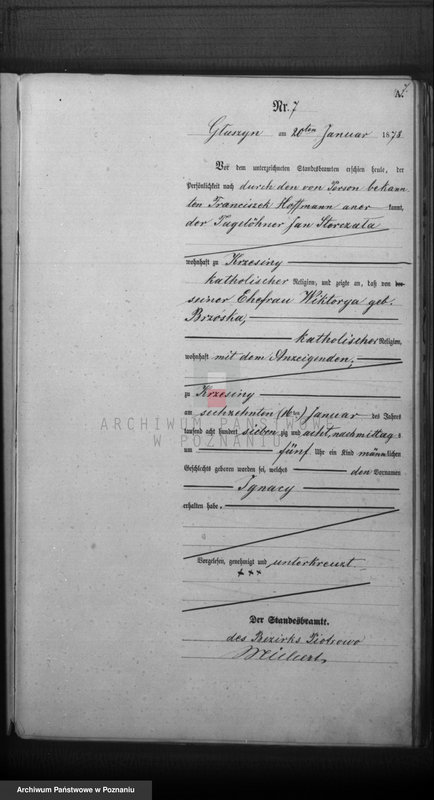 7
Nr. 7
Głuszyn am 20ten Januar 1878
Vor dem unterzeichneten Standesbeamten erschien heute, der
Persönlichkeit nach durch den von Person bekann
ten Franciszek Hoffmann aner kannt,
der Tagelöhner Jan Storczała
wohnhaft zu Krzesiny
katholischer Religion, und zeigte an, daß von der
seiner Ehefrau Wiktorya geb.
Brzoska,
katholischer Religion,
wohnhaft mit dem Anzeigenden,
zu Krzesiny
am sechzehnten (16ten) Januar des Jahres
tausend acht hundert sieben zig und acht, nachmittag s
um fünf Uhr ein Kind männlichen
Geschlechts geboren worden sei, welches den Vornamen
Ignacy
erhalten habe.
Vorgelesen, genehmigt und unterkreuzt
+ + +
Der Standesbeamte.
des Bezirks Piotrowo
ARCHIWUM PAŃSTWOWE
W POZNANIU
Archiwum Państwowe w Poznaniu